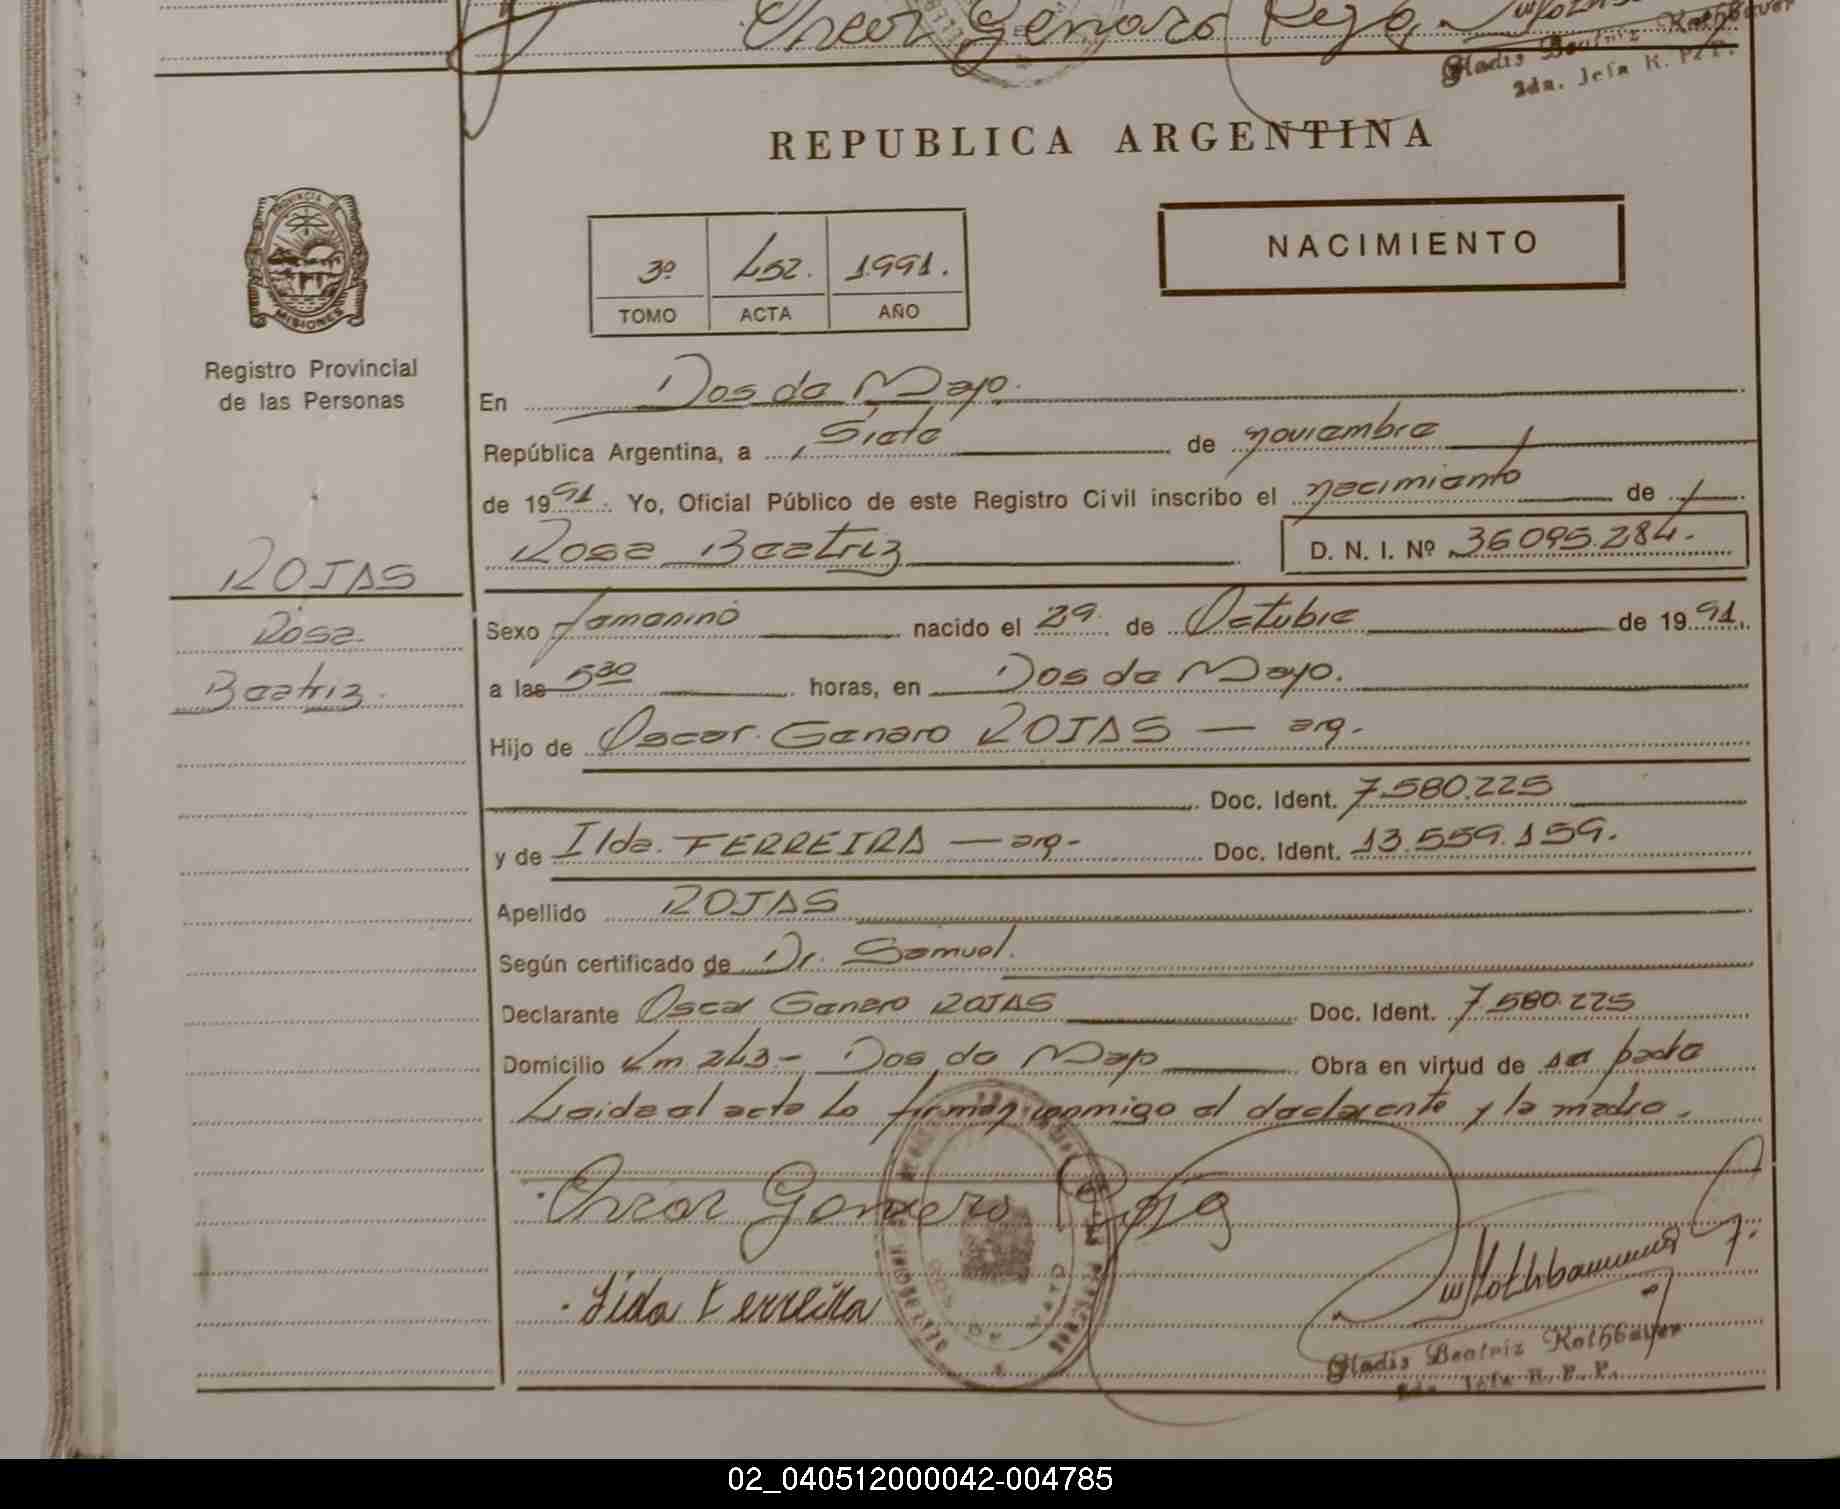 Oscar Genaro Roja
Gladis Beatriz Rothbauer
2da. Jefa R. P. P.
REPUBLICA ARGENTINA
PROVINCIA DE
MISIONES
Registro Provincial
de las Personas
3º 452. 1991.
TOMO ACTA AÑO
NACIMIENTO
En Dos de Mayo.
República Argentina, a Siete de noviembre
de 1991. Yo, Oficial Público de este Registro Civil inscribo el nacimiento de
Rosa Beatriz D. N. I. Nº 36.095.284.
ROJAS
Rosa
Beatriz.
Sexo femenino nacido el 29. de Octubre de 1991.
a las 5 30 horas, en Dos de Mayo.
Hijo de Oscar Genaro ROJAS — arg.
Doc. Ident. 7.580.225
y de Ilda. FERREIRA — arg- Doc. Ident. 13.559.159.
Apellido ROJAS
Según certificado de Dr. Samuel.
Declarante Oscar Genaro ROJAS Doc. Ident. 7.580.225
Domicilio Km 243- Dos de Mayo Obra en virtud de su padre
Leida el acta lo firman conmigo el declarante y la madre.
Oscar Genaro Roja
Ilda Ferreira
Gladis Beatriz Rothbauer
2da. Jefa R. P. P.
02_040512000042-004785